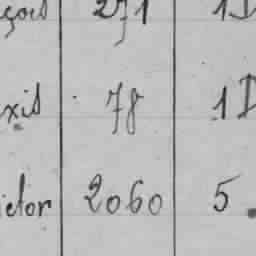 çois 271 1D
xis 78 1D
ictor 2060 5.